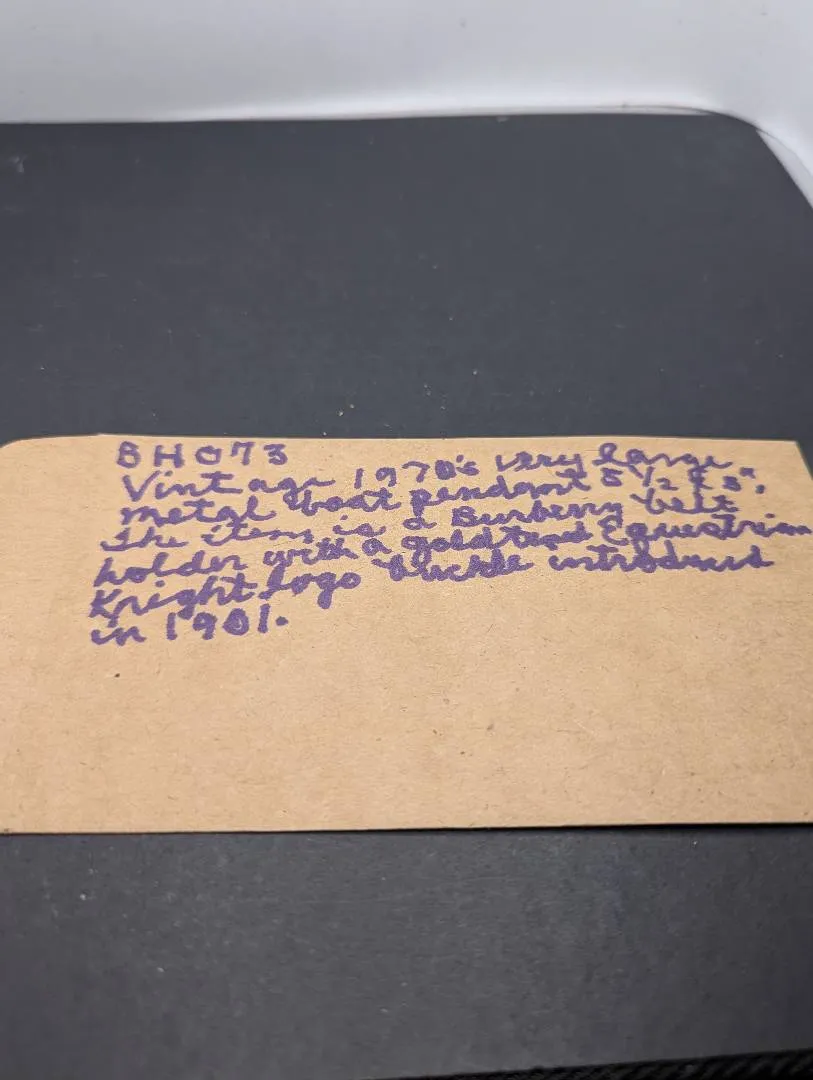 BH073
Vintage 1970's very large
metal boat pendant 5 1/2 x 5",
The item is a Burberry belt
holder with a goldtoned Equestrian
Knight logo buckle introduced
in 1901.